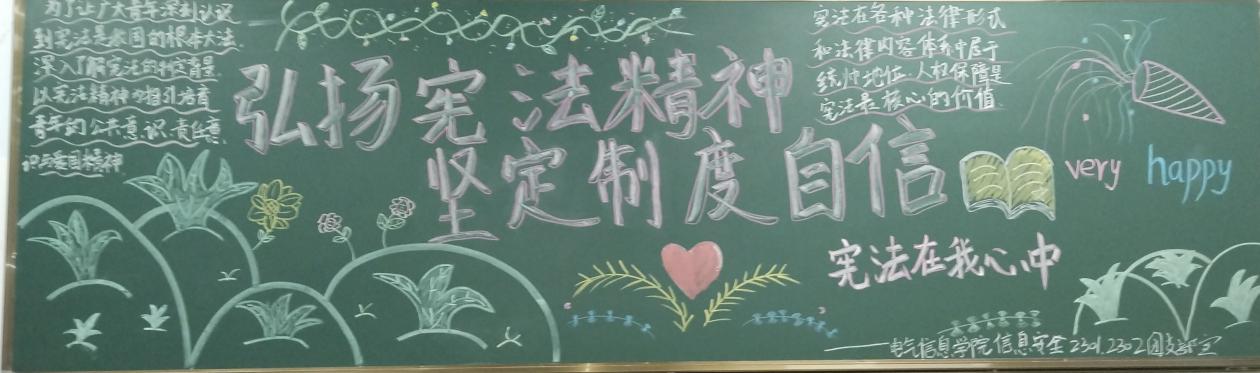 为了让广大青年深刻认识
到宪法是我国的根本大法.
深入了解宪法的社会背景.
以宪法精神为指引培育
青年的公共意识.责任意
识与爱国精神.
弘扬宪法精神
坚定制度自信
宪法在各种法律形式
和法律内容体系中居于
统帅地位.人权保障是
宪法最核心的价值.
very happy
宪法在我心中
——电气信息学院信息安全2301.2302团支部宣